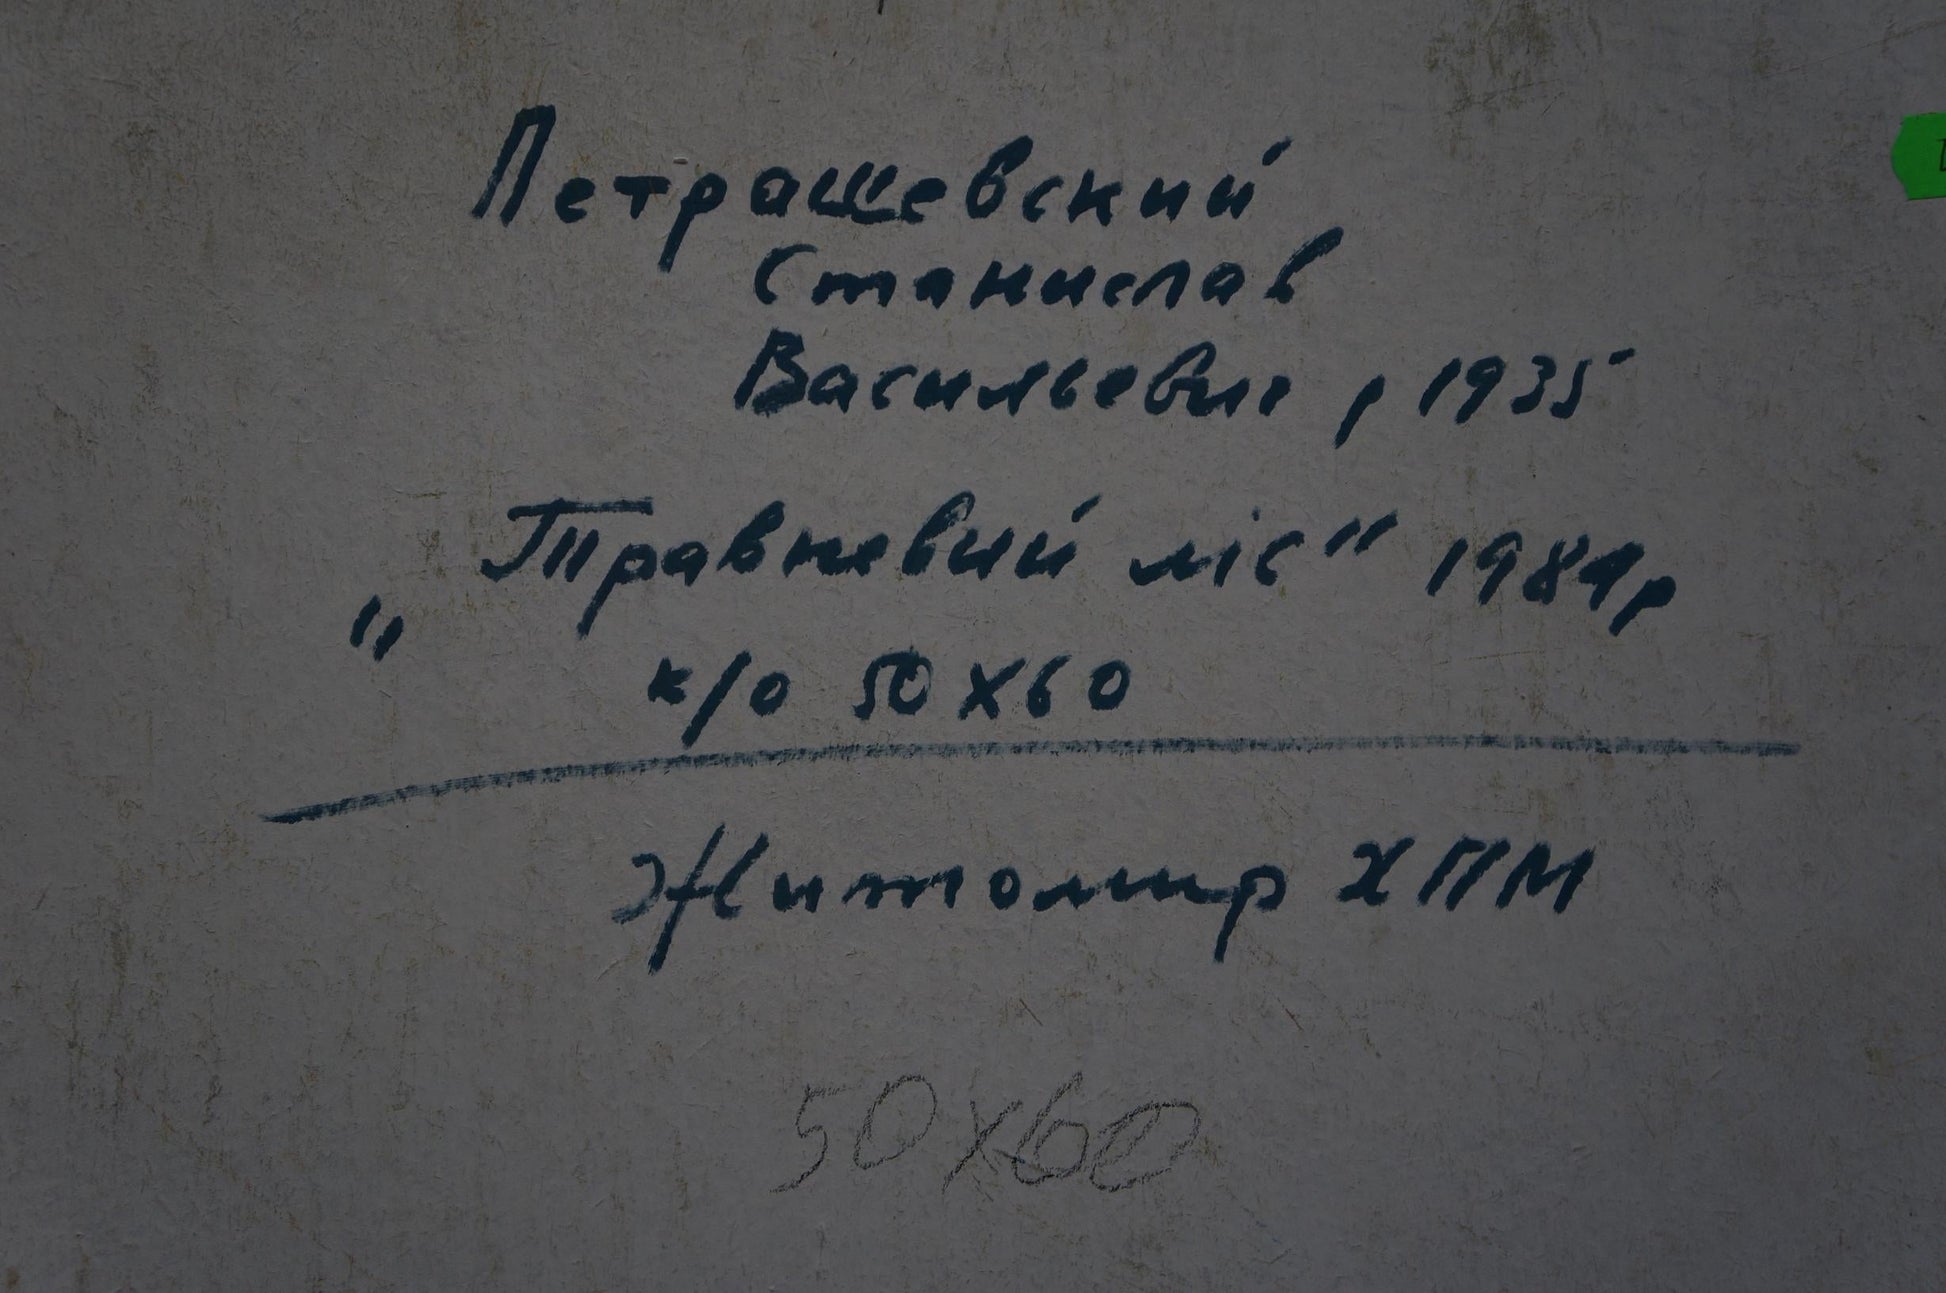 Петрашевский
Станислав
Васильевич, 1935
"Травневий ліс" 1984р
к/о 50х60
Житомир ХПМ
50х60